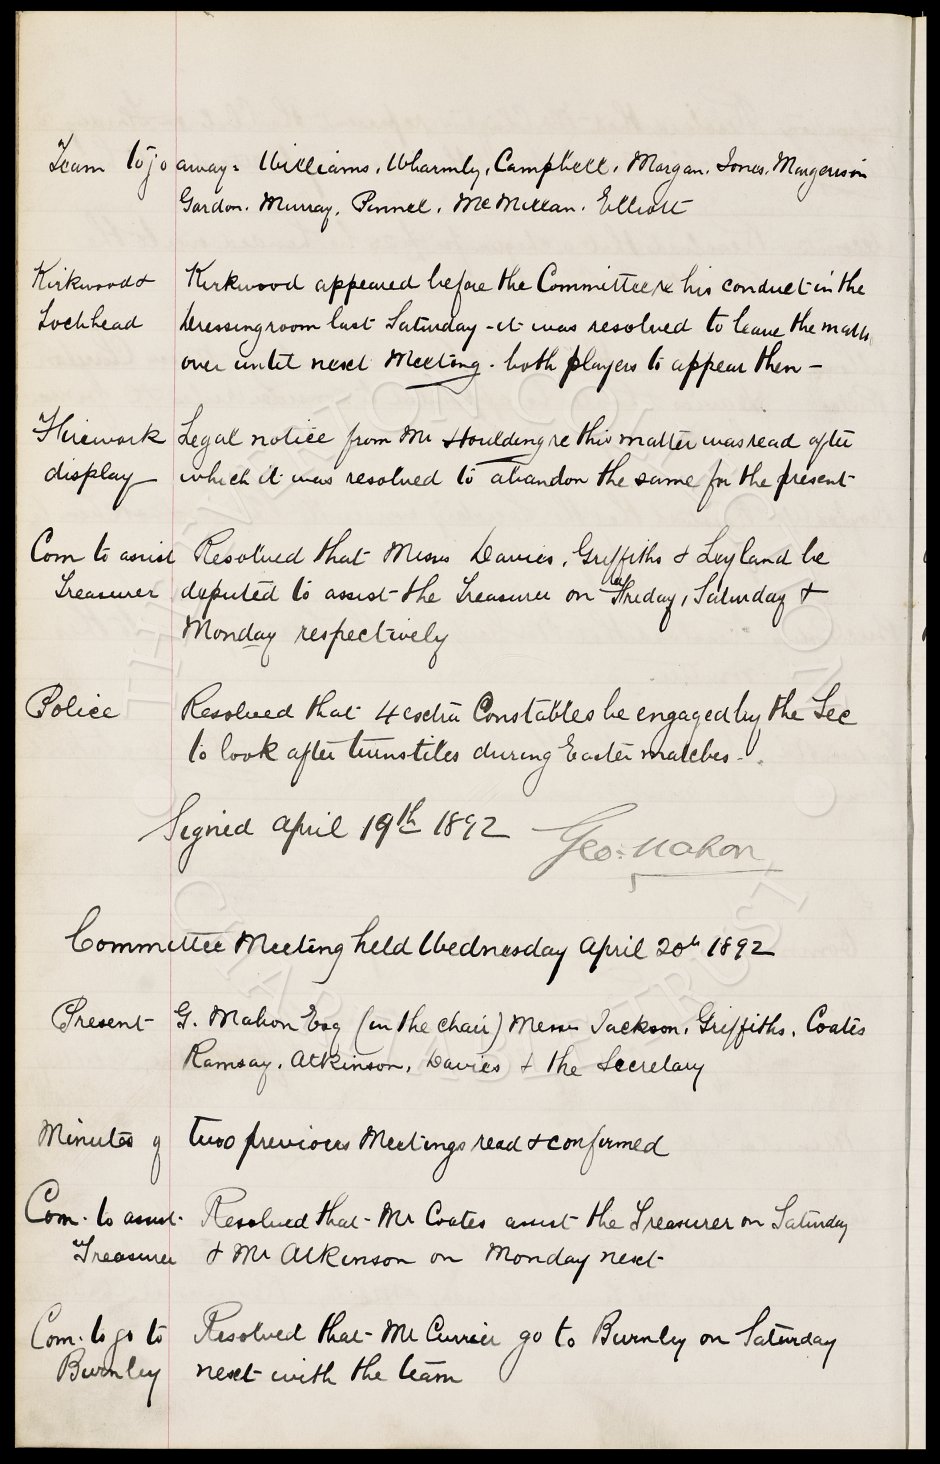 Team to go away: Williams, Wharmly, Campbell, Morgan, Jones, Margerison
Gordon, Murray, Pinnel, McMillan, Elliott
Kirkwood & Kirkwood appeared before the Committee re his conduct in the
Lochhead Dressing room last Saturday - it was resolved to leave the matter
over until next Meeting - both players to appear then -
Firework Legal notice from Mr Houlding re this matter was read after
display which it was resolved to abandon the same for the present
Com to assist Resolved that Messrs Davies, Griffiths & Leyland be
Treasurer deputed to assist the Treasurer on Friday, Saturday &
Monday respectively
Police Resolved that 4 extra Constables be engaged by the Sec
to look after turnstiles during Easter matches.
Signed April 19th 1892 Geo: Mahon
Committee Meeting held Wednesday April 20th 1892
Present G. Mahon Esq (in the chair) Messrs Jackson, Griffiths, Coates
Ramsay, Atkinson, Davies & the Secretary
Minutes of two previous Meetings read & confirmed
Com. to assist Resolved that Mr Coates assist the Treasurer on Saturday
Treasurer & Mr Atkinson on Monday next
Com. to go to Resolved that Mr Currier go to Burnley on Saturday
Burnley next with the team
EVERTON COLLECTION
CHARITABLE TRUST